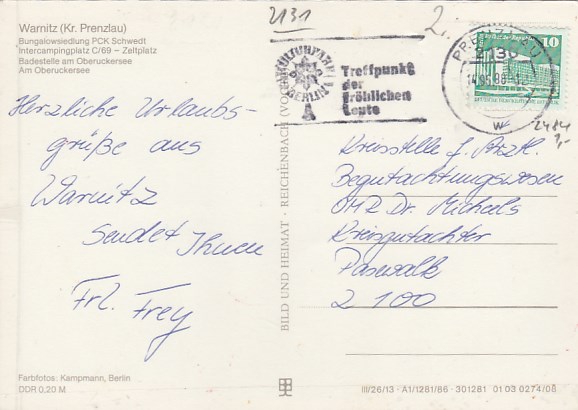 2131
2.
Warnitz (Kr. Prenzlau)
Bungalowsiedlung PCK Schwedt
Intercampingplatz C/69 – Zeltplatz
Badestelle am Oberuckersee
Am Oberuckersee
KULTURPARK
BERLIN
Treffpunkt
der
fröhlichen
Leute
PRENZLAU
2130
10
2484
7,-
Herzliche Urlaubs-
grüße aus
Warnitz
sendet Ihnen
Frl. Frey
BILD UND HEIMAT · REICHENBACH (VOGTL)
Kreisstelle f. Ärztl.
Begutachtungswesen
OMR Dr. Michels
Kreisgutachter
Pasewalk
2100
Farbfotos: Kampmann, Berlin
DDR 0,20 M
III/26/13 · A1/1281/86 · 301281 01 03 0274/08